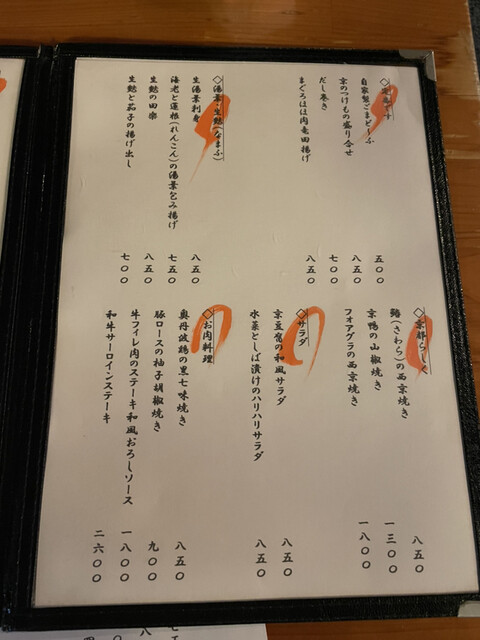 ◇定番です
自家製ごまどうふ 五〇〇
京のつけもの盛り合せ 八五〇
だし巻き 七〇〇
まぐろほほ肉竜田揚げ 八五〇
◇湯葉・生麩(なまふ)
生湯葉刺身 八五〇
海老と蓮根(れんこん)の湯葉包み揚げ 七五〇
生麩の田楽 八五〇
生麩と茄子の揚げ出し 七〇〇
鰆(さわら)の西京焼き 八五〇
京鴨の山椒焼き 一三〇〇
フォアグラの西京焼き 一八〇〇
◇サラダ
京豆腐の和風サラダ 八五〇
水菜としば漬けのハリハリサラダ 八五〇
◇お肉料理
奥丹波鶏の黒七味焼き 八五〇
豚ロースの柚子胡椒焼き 九〇〇
牛フィレ肉のステーキ和風おろしソース 一八〇〇
和牛サーロインステーキ 二六〇〇